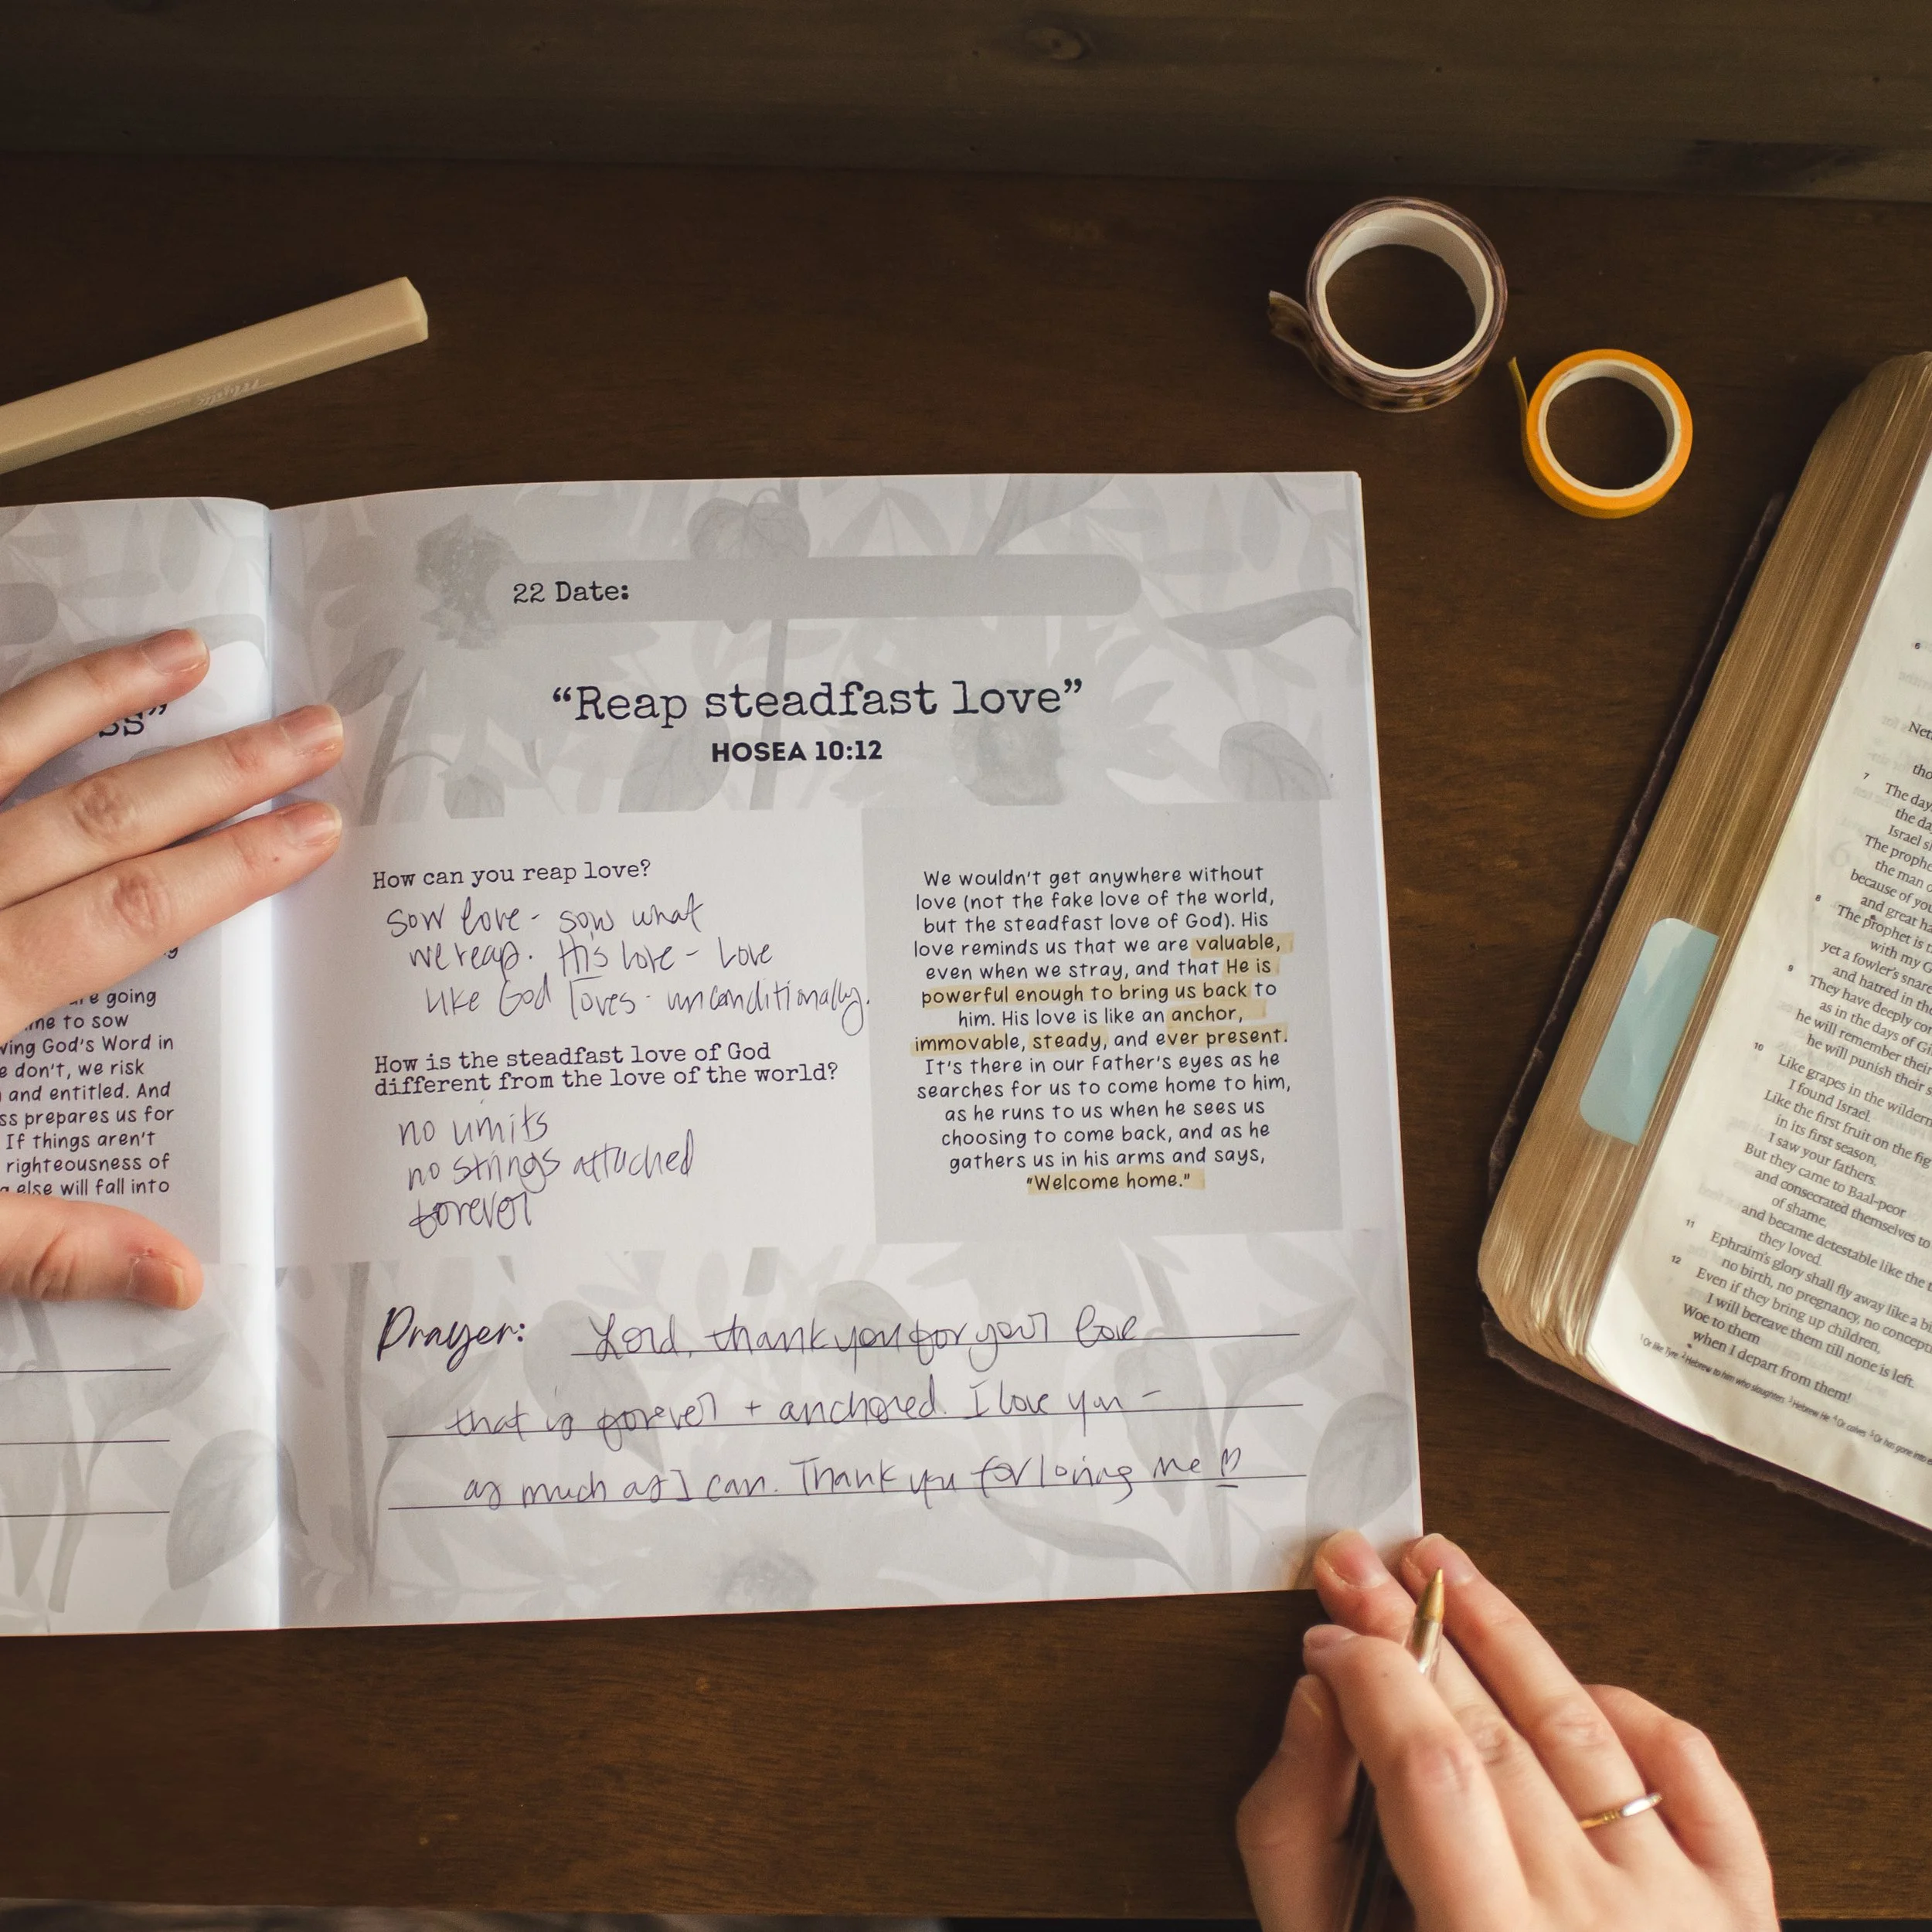 ss”
are going
me to sow
ving God's Word in
e don't, we risk
and entitled. And
ss prepares us for
If things aren't
righteousness of
else will fall into
22 Date:
“Reap steadfast love”
HOSEA 10:12
How can you reap love?
sow love - sow what
we reap. His love - Love
like God loves - unconditionally.
How is the steadfast love of God
different from the love of the world?
no limits
no strings attached
forever
We wouldn't get anywhere without
love (not the fake love of the world,
but the steadfast love of God). His
love reminds us that we are valuable,
even when we stray, and that He is
powerful enough to bring us back to
him. His love is like an anchor,
immovable, steady, and ever present.
It's there in our Father's eyes as he
searches for us to come home to him,
as he runs to us when he sees us
choosing to come back, and as he
gathers us in his arms and says,
"Welcome home."
Prayer: Lord, thank you for your love
that is forever + anchored. I love you -
as much as I can. Thank you for loving me ♡
6
Net
tho
7 The day
the da
Israel s
The prophe
the man o
because of you
and great ha
8 The prophet is t
with my G
yet a fowler's snare
and hatred in the
9 They have deeply cor
as in the days of Gi
he will remember their
he will punish their s
10 Like grapes in the wildern
I found Israel.
Like the first fruit on the fig
in its first season,
I saw your fathers.
But they came to Baal-peor
and consecrated themselves to
of shame,
and became detestable like the t
they loved.
11 Ephraim's glory shall fly away like a bi
no birth, no pregnancy, no concept
12 Even if they bring up children,
I will bereave them till none is left.
Woe to them
when I depart from them!
1 Or like Tyre 2 Hebrew to him who slaughters 3 Hebrew He 4 Or calves 5 Or has gone into e